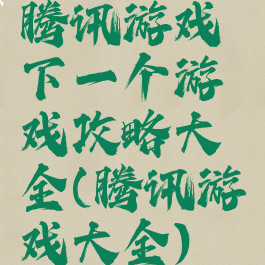 腾讯游戏
下一个游
戏攻略大
全(腾讯游
戏大全)